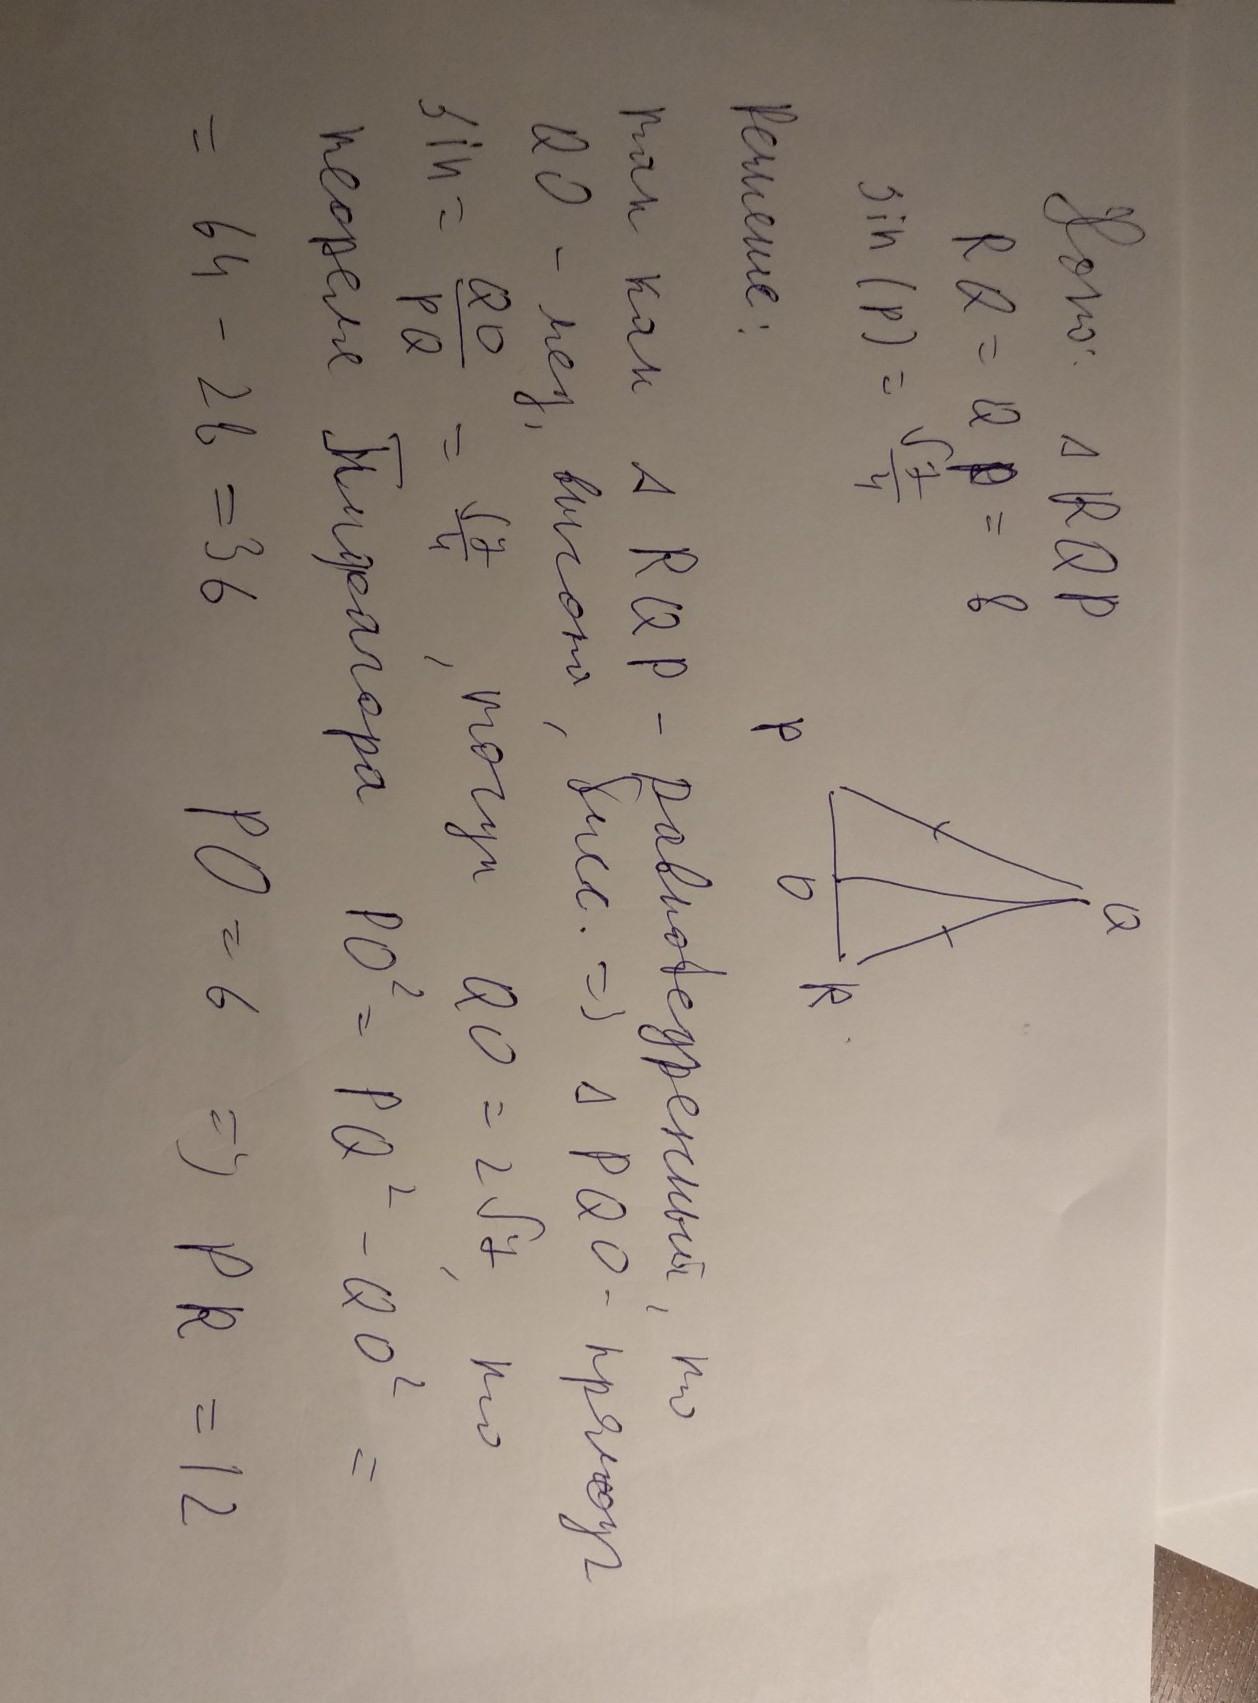 Дано: Δ RQP
RQ = QP = 8
sin (P) = √7/4
Q
P
O
R
Решение:
так как Δ RQP - равнобедренный, то
QO - мед, высота, бисс. => Δ PQO - прямоуг
sin = QO/PQ = √7/4, тогда QO = 2√7, по
теореме Пифагора PO² = PQ² - QO² =
= 64 - 28 = 36 PO = 6 => PR = 12